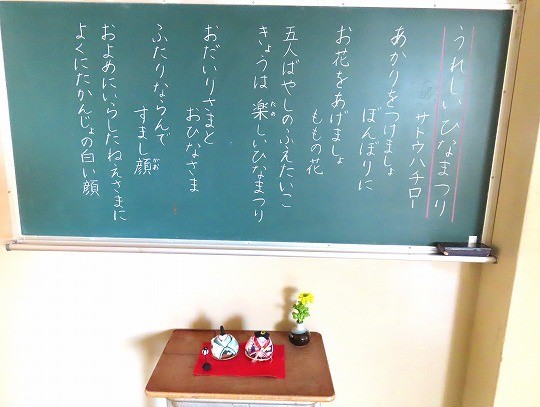 うれしいひなまつり
サトウハチロー
あかりをつけましょ
ぼんぼりに
お花をあげましょ
ももの花
五人ばやしのふえたいこ
きょうは楽(たの)しいひなまつり
おだいりさまと
おひなさま
ふたりならんで
すまし顔(がお)
およめにいらしたねえさまに
よくにたかんじょの白い顔